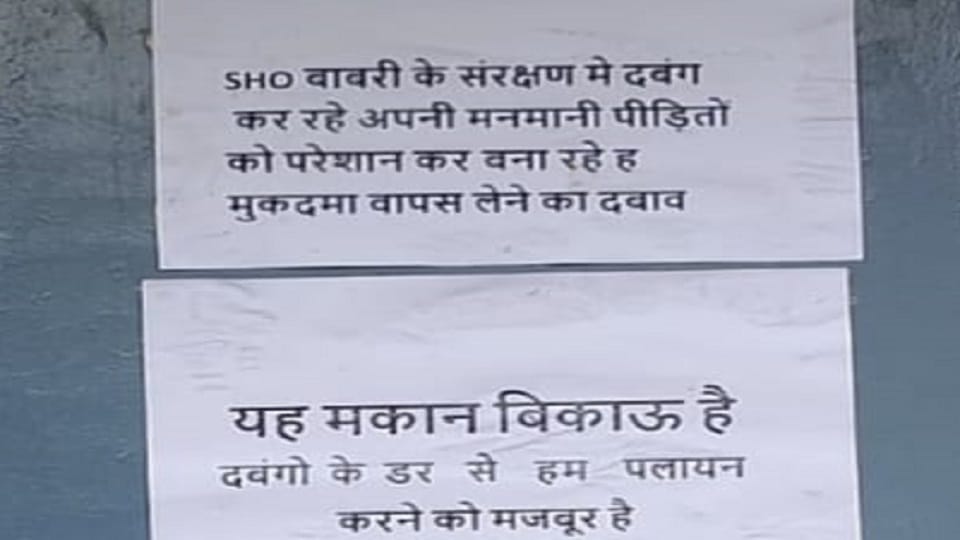 SHO वावरी के संरक्षण मे दवंग
कर रहे अपनी मनमानी पीड़ितों
को परेशान कर वना रहे ह
मुकदमा वापस लेने का दवाव
यह मकान बिकाऊ है
दवंगो के डर से हम पलायन
करने को मजवूर है